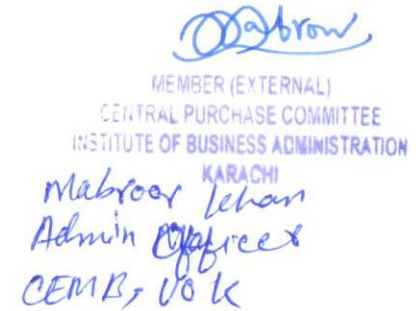 Mabroor
MEMBER (EXTERNAL)
CENTRAL PURCHASE COMMITTEE
INSTITUTE OF BUSINESS ADMINISTRATION
KARACHI
Mabroor Khan
Admin Officer
CEMB, UOK